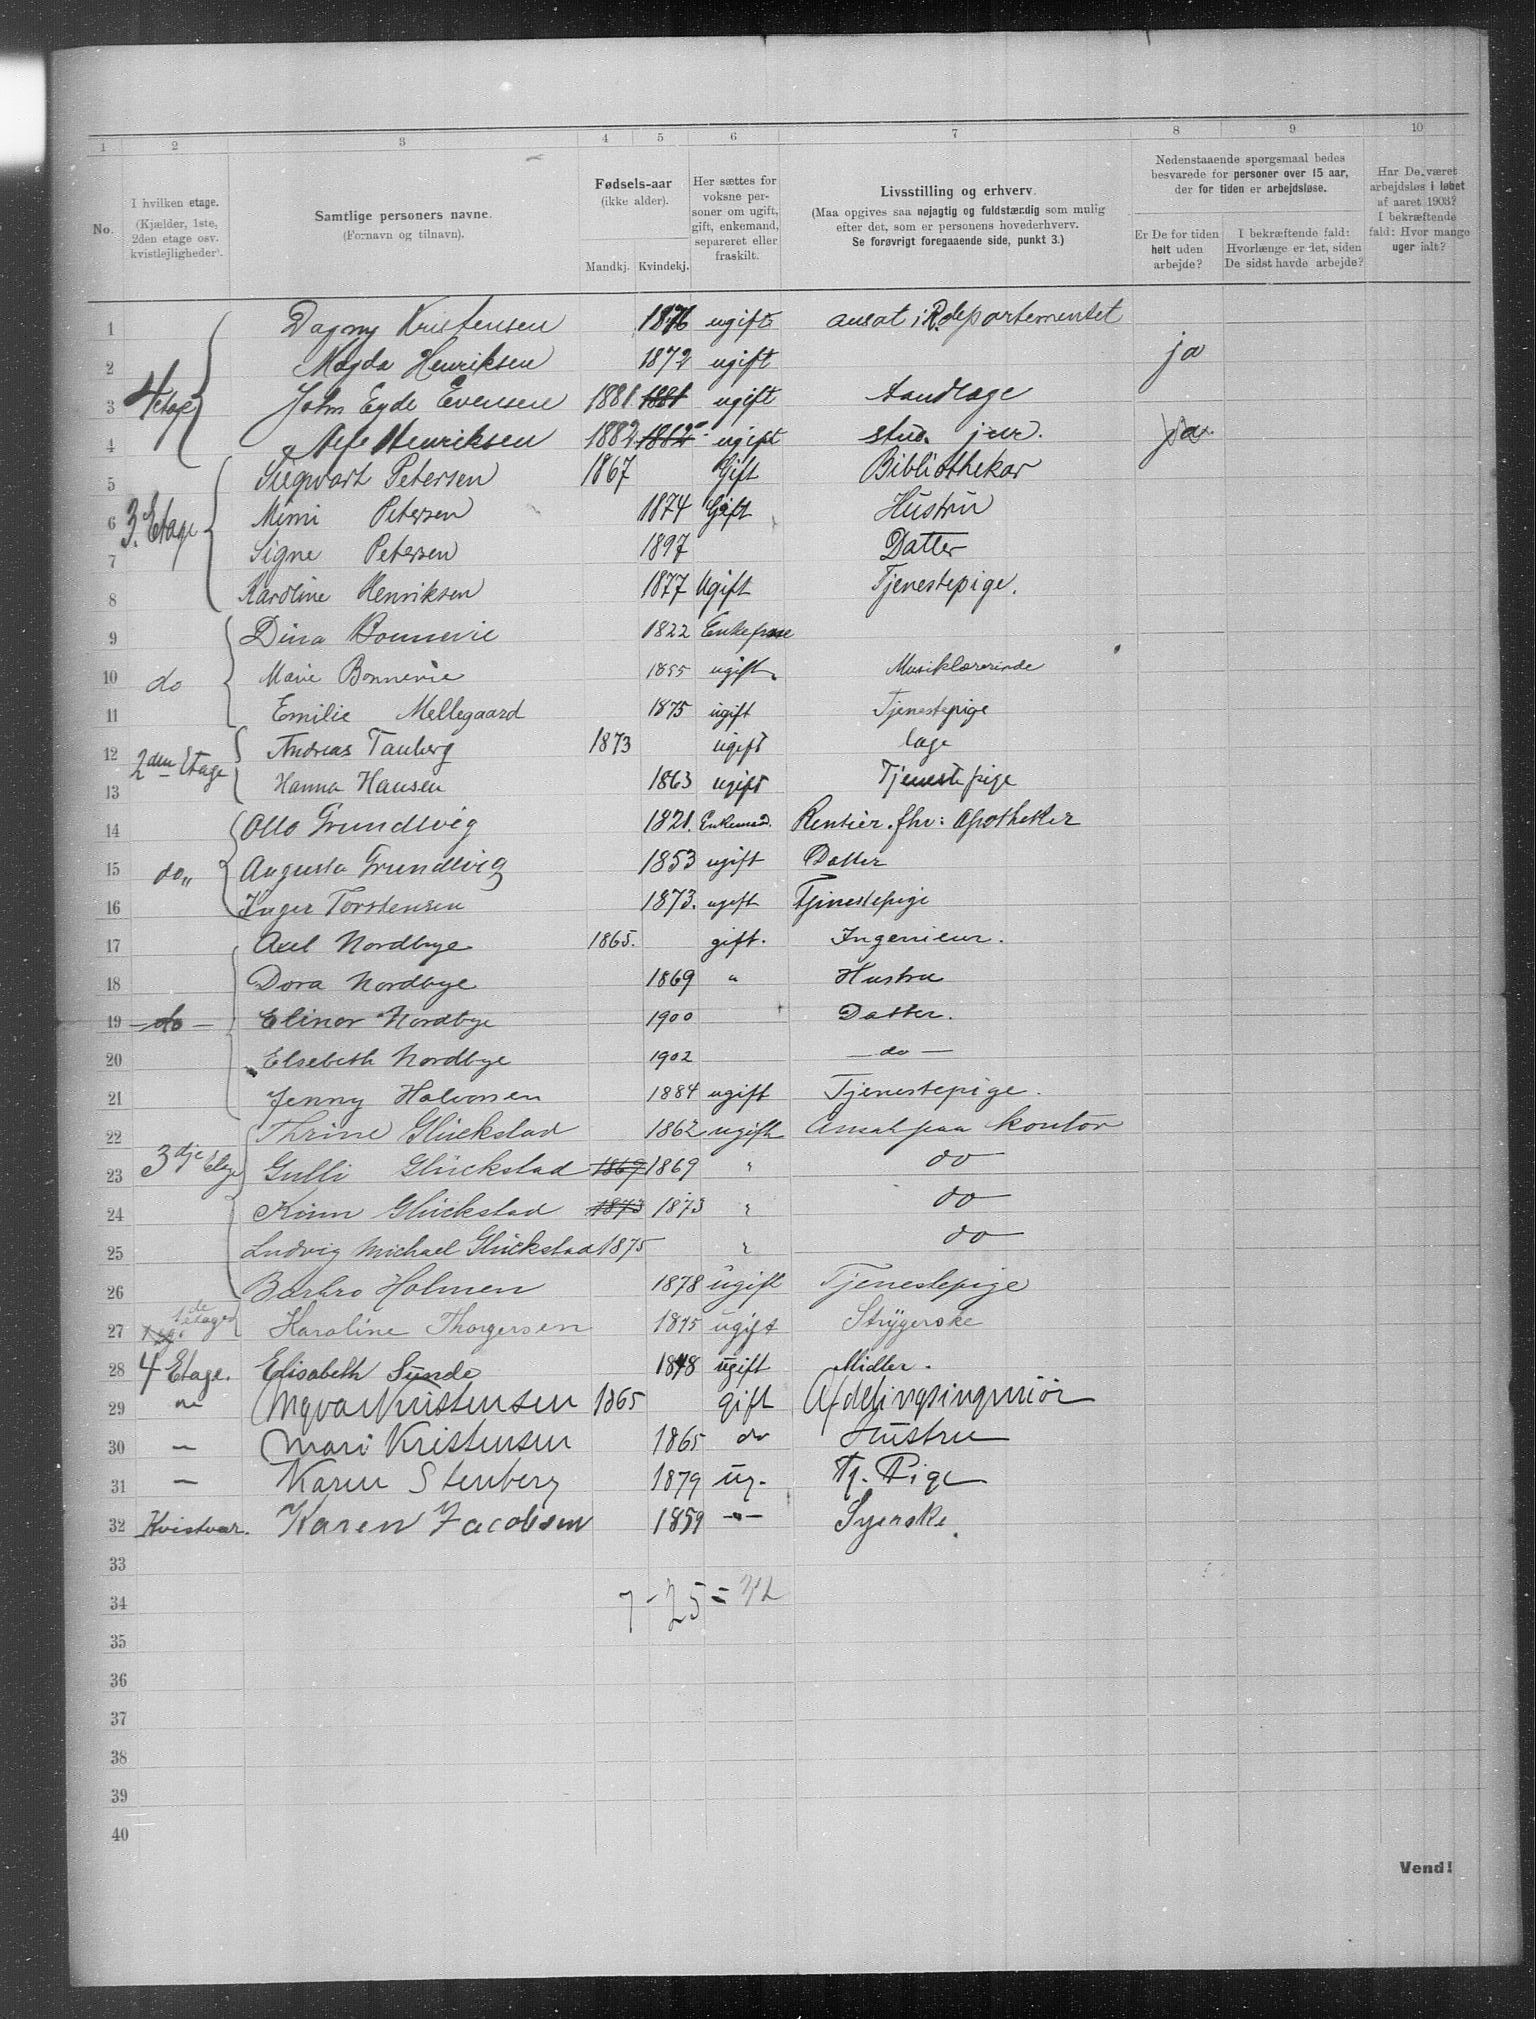 1 2 3 4 5 6 7 8 9 10
No.
I hvilken etage. (Kjælder, 1ste, 2den etage osv. kvistlejligheder).
Samtlige personers navne. (Fornavn og tilnavn).
Fødsels-aar (ikke alder). Mandkj. Kvindekj.
Her sættes for voksne personer om ugift, gift, enkemand, separeret eller fraskilt.
Livsstilling og erhverv. (Maa opgives saa nøjagtig og fuldstændig som mulig efter det, som er personens hovederhverv. Se forøvrigt foregaaende side, punkt 3.)
Nedenstaaende spørgsmaal bedes besvarede for personer over 15 aar, der for tiden er arbejdsløse.
Er De for tiden helt uden arbejde?
I bekræftende fald: Hvorlænge er det, siden De sidst havde arbejde?
Har De været arbejdsløs i løbet af aaret 1903? I bekræftende fald: Hvor mange uger ialt?
1 Dagny Kristensen 1876 ugift ansat i R.departementet
2 Magda Henriksen 1872 ugift ja
3 4 etage John Eyde Evensen 1881 1881 ugift tandlæge
4 Alf Henriksen 1882 1882 ugift stud. jur. ja
5 Siegvart Petersen 1867 Gift Bibliothekar
6 3. Etage Mimi Petersen 1874 Gift Hustru
7 Signe Petersen 1897 Datter
8 Karoline Henriksen 1877 Ugift Tjenestepige.
9 Dina Bonnevie 1822 Enkefrue
10 do Marie Bonnevie 1855 ugift Musiklærerinde
11 Emilie Mellegaard 1875 ugift Tjenestepige
12 2den Etage Andreas Tanberg 1873 ugift læge
13 Hanna Hansen 1863 ugift Tjenestepige
14 Otto Grundtvig 1821. Enkemd. Rentier. fhv: Apotheker
15 do,, Augusta Grundtvig 1853 ugift Datter
16 Inger Torstensen 1873. ugift Tjenestepige
17 Axel Nordbye 1865. gift. Ingenieur.
18 Dora Nordbye 1869 " Hustru
19 do Elinor Nordbye 1900 Datter.
20 Elsebeth Nordbye 1902 — do —
21 Jenny Halvorsen 1884 ugift Tjenestepige.
22 Thrine Glückstad 1862 ugift Ansat paa kontor
23 3dje Etage Gulli Glückstad 1869 1869 " do
24 Kinn Glückstad 1873 1873 " do
25 Ludvig Michael Glückstad 1875 " do
26 Barbro Holmen 1878 ugift Tjenestepige
27 1de etage Karoline Thorgersen 1875 ugift Strygerske
28 4 Etage. Elisabeth Sunde 1848 ugift Midler.
29 " Yngvar Kristensen 1865 gift Afdelingsingeniör
30 — Mari Kristensen 1865 do Hustru
31 — Karen Stenberg 1879 ug. Tj. Pige
32 Kvistvær. Karen Jacobsen 1859 —"— Syerske.
33
34 7 - 25 = 32
35
36
37
38
39
40
Vend!